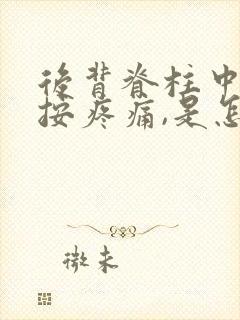 后背脊柱中
按疼痛,是怎
微未